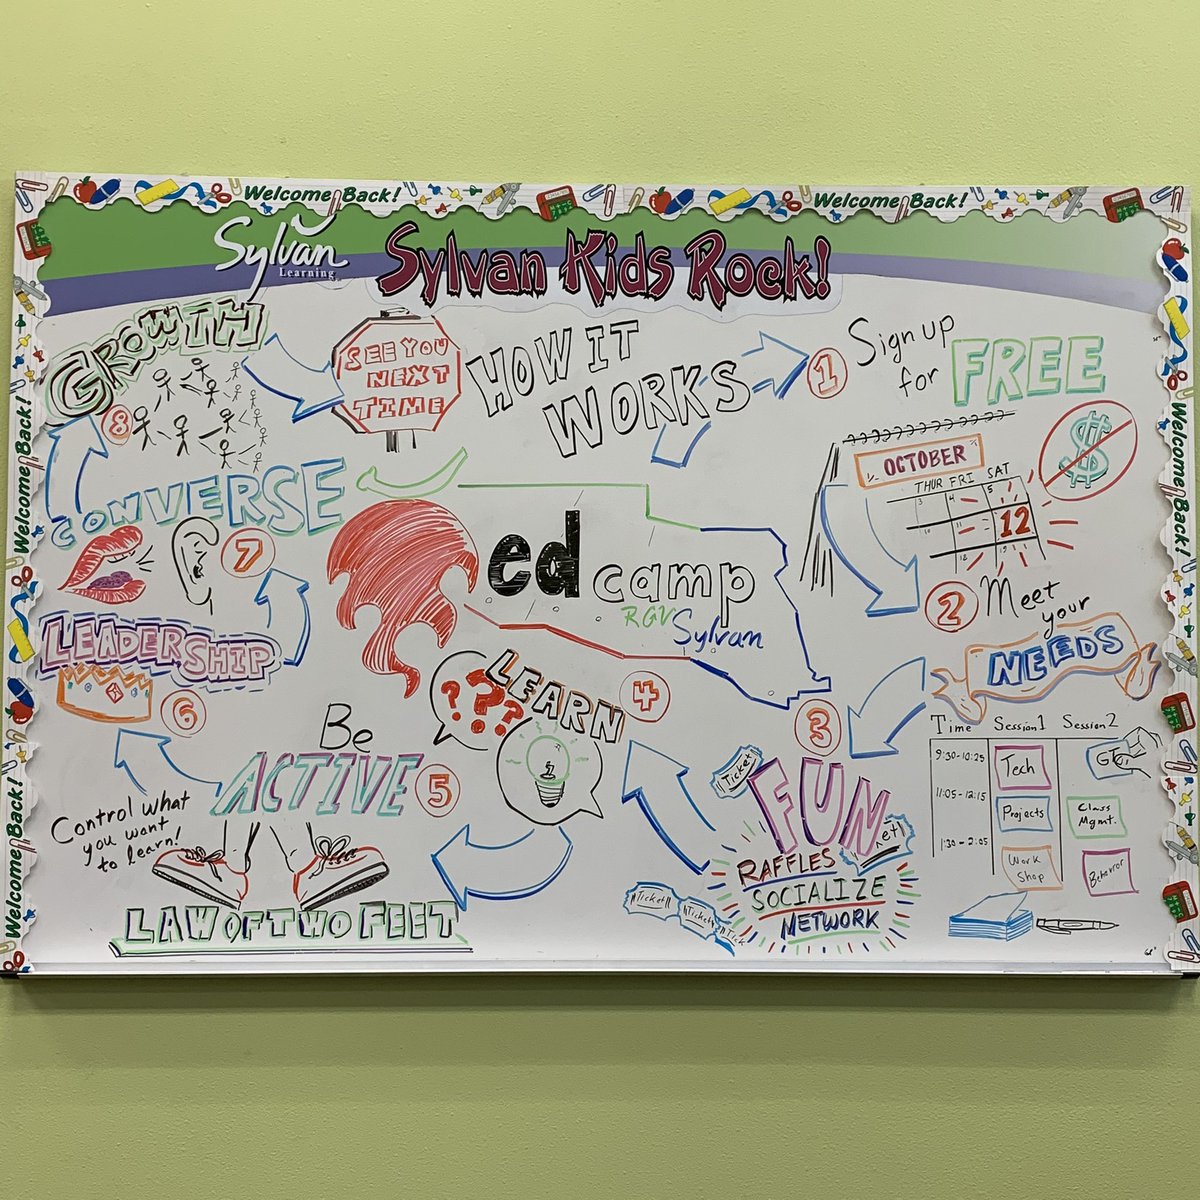 Welcome Back!
Welcome Back!
Sylvan
Learning
Sylvan Kids Rock!
HOW IT
WORKS
1
Sign up
for FREE
$
OCTOBER
THUR FRI SAT
3 4 5
10 11 12
18 19
2
Meet
your
NEEDS
Time Session 1 Session 2
9:30-10:25 Tech
11:05-12:15 Projects Class
Mgmt.
1:30-2:05 Work
Shop
Behavior
3
FUN
Ticket
RAFFLES
SOCIALIZE
NETWORK
"Ticket"
"Ticket
"Tick
4
LEARN
???
5
Be
ACTIVE
Control what
you want
to learn!
LAW OF TWO FEET
6
LEADERSHIP
7
CONVERSE
8
GROWTH
SEE YOU
NEXT
TIME
ed camp
RGV
Sylvan
Welcome Back!
Welcome Back!
Welcome Back!
Welcome Back!